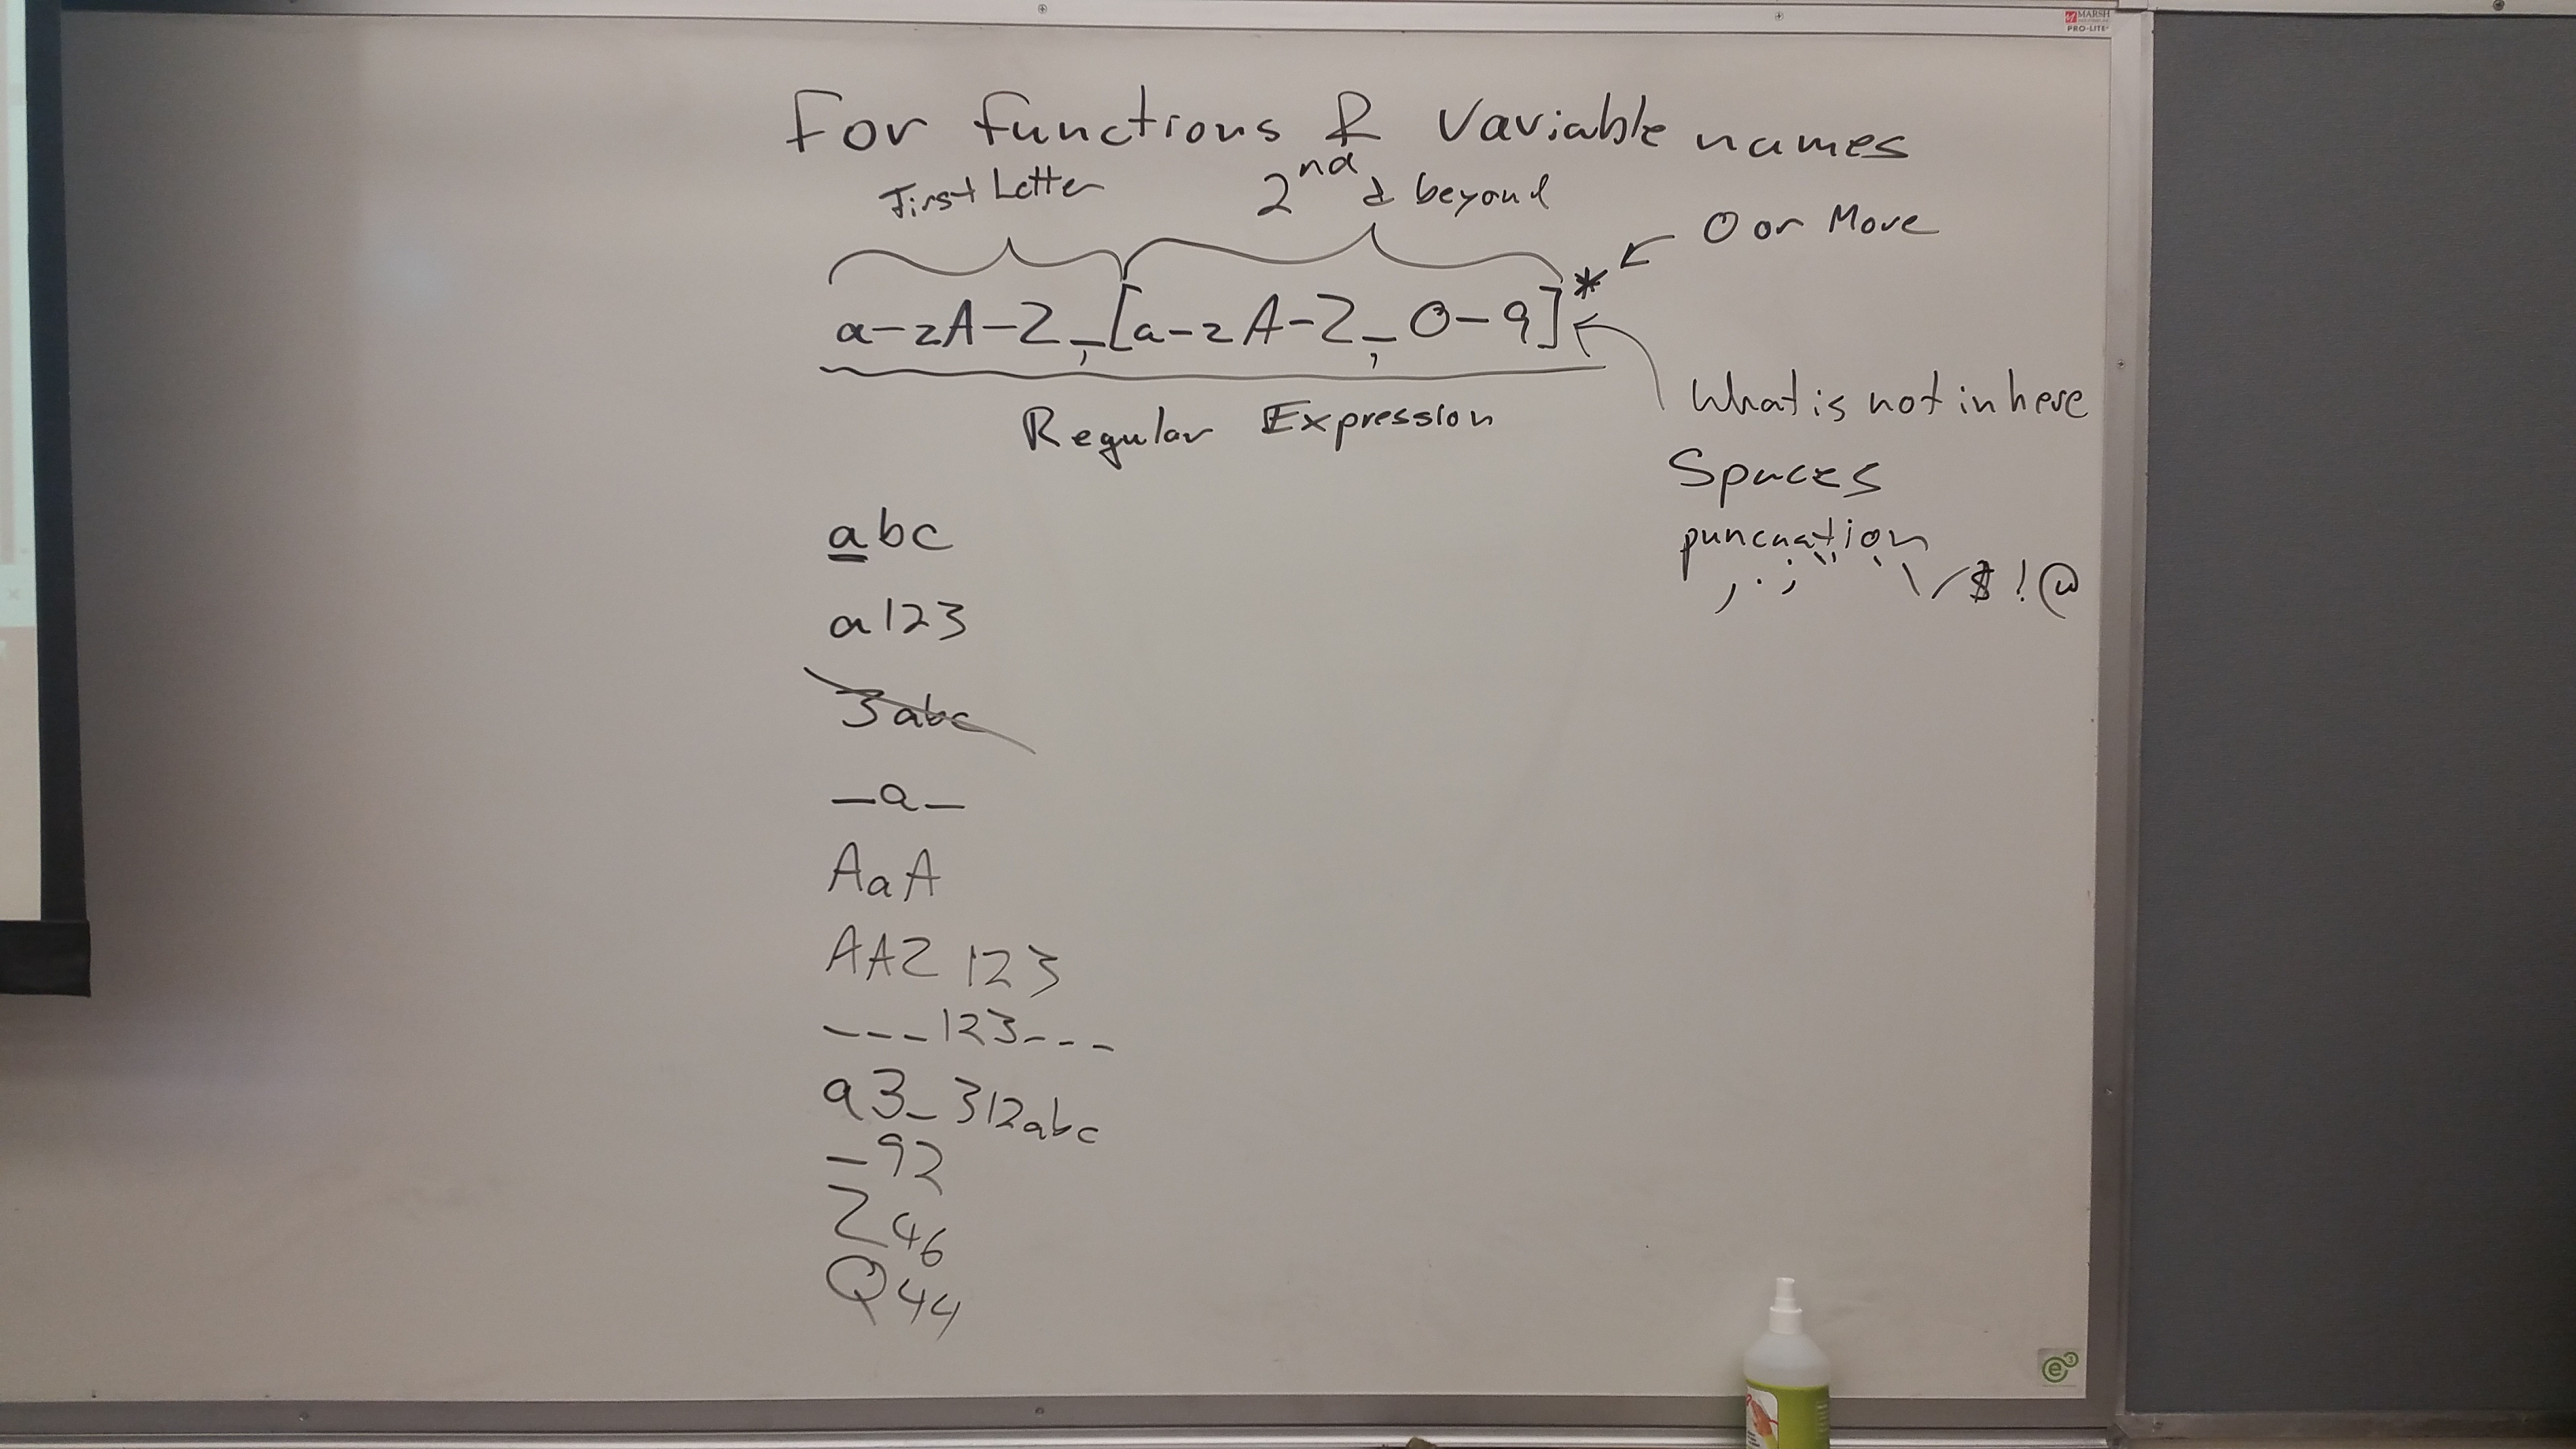 MARSH
PRO-LITE
For functions & Variable names
First Letter
2nd & beyond
0 or More
a-zA-Z_,[a-zA-Z_, 0-9]*
Regular Expression
What is not in here
Spaces
puncuation
, . ; " ' \ / $ ! @
abc
a123
3abc
_a_
AaA
AAZ123
___123___
a3_312abc
_92
Z46
Q44
e3